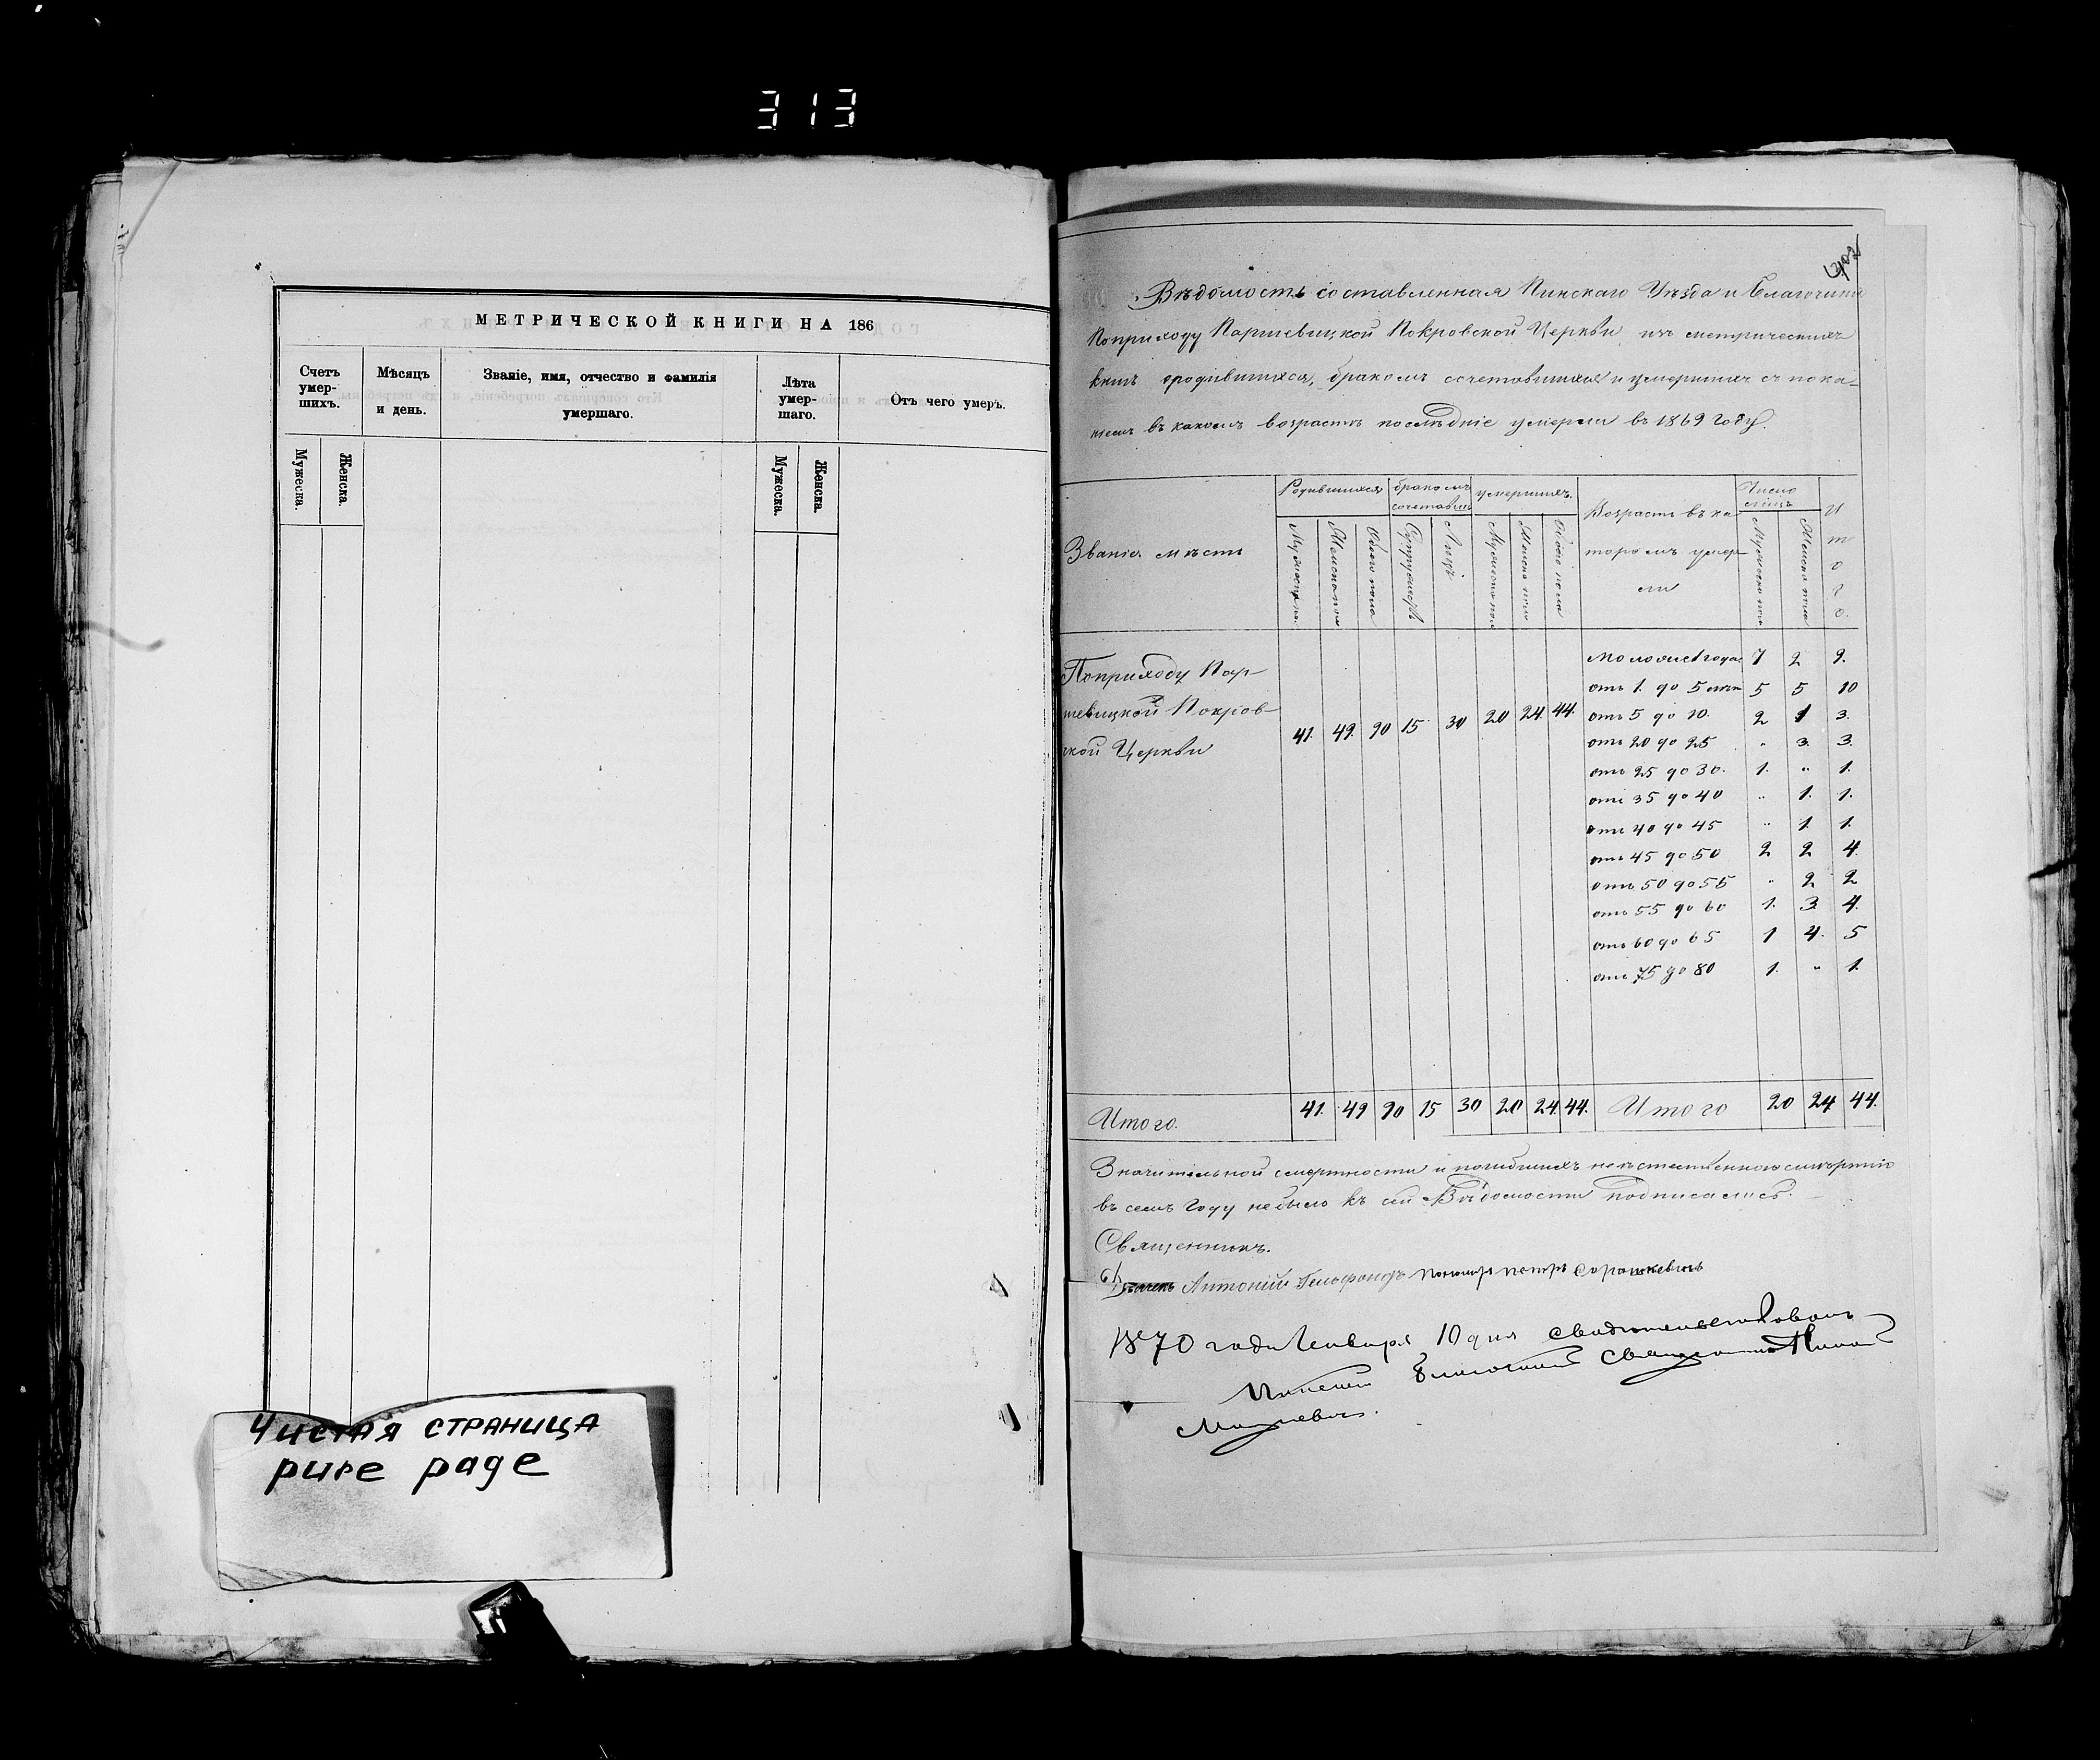 313
МЕТРИЧЕСКОЙ КНИГИ НА 186
Счетъ умер- шихъ.
Мѣсяцъ и день.
Званіе, имя, отчество и фамилія умершаго.
Лѣта умер- шаго.
Отъ чего умеръ.
Мужеска.
Женска.
Мужеска.
Женска.
Чистая страница
pure page
Вѣдомость составленная Пинскаго Уѣзда и
по приходу Паршевицкой Покровской Церкви изъ метрическихъ
книгъ о родившихся, бракомъ сочетавшихся и умершихъ съ пока-
ніемъ въ какомъ возрастѣ послѣдніе умерли въ 1869 году.
Званія мѣстъ
Родившихся
бракомъ сочетавш
умершихъ.
Возрастъ въ ко
торомъ умер
ли
Число лицъ
Итого.
Женска пола
Обоего пола
Супружествъ
Лицъ
Обоего пола
По приходу Пар-
шевицкой Покров-
ской Церкви
41. 49. 90 15 30 20 24. 44.
7 2 9.
отъ 1. до 5 лѣтъ 5 5 10
отъ 5 до 10. 2 1 3.
отъ 20 до 25 " 3. 3.
отъ 25 до 30. 1. " 1.
отъ 35 до 40 " 1. 1.
отъ 40 до 45 " 1. 1.
отъ 45 до 50 2 2 4.
отъ 50 до 55 " 2 2
отъ 55 до 60 1. 3. 4.
отъ 60 до 65 1 4. 5
отъ 75 до 80 1. " 1.
Итого. 41. 49 90 15 30 20 24. 44. Итого 20 24 44.
Значительной смертности и погибшихъ неестественною смертію
въ семъ году не было къ сей Вѣдомости подписались.
Священникъ.
Антоній Пономарь Петръ
1870 года Генваря 10 дня свидѣтельствовалъ
Пинскій Благочинный Священникъ